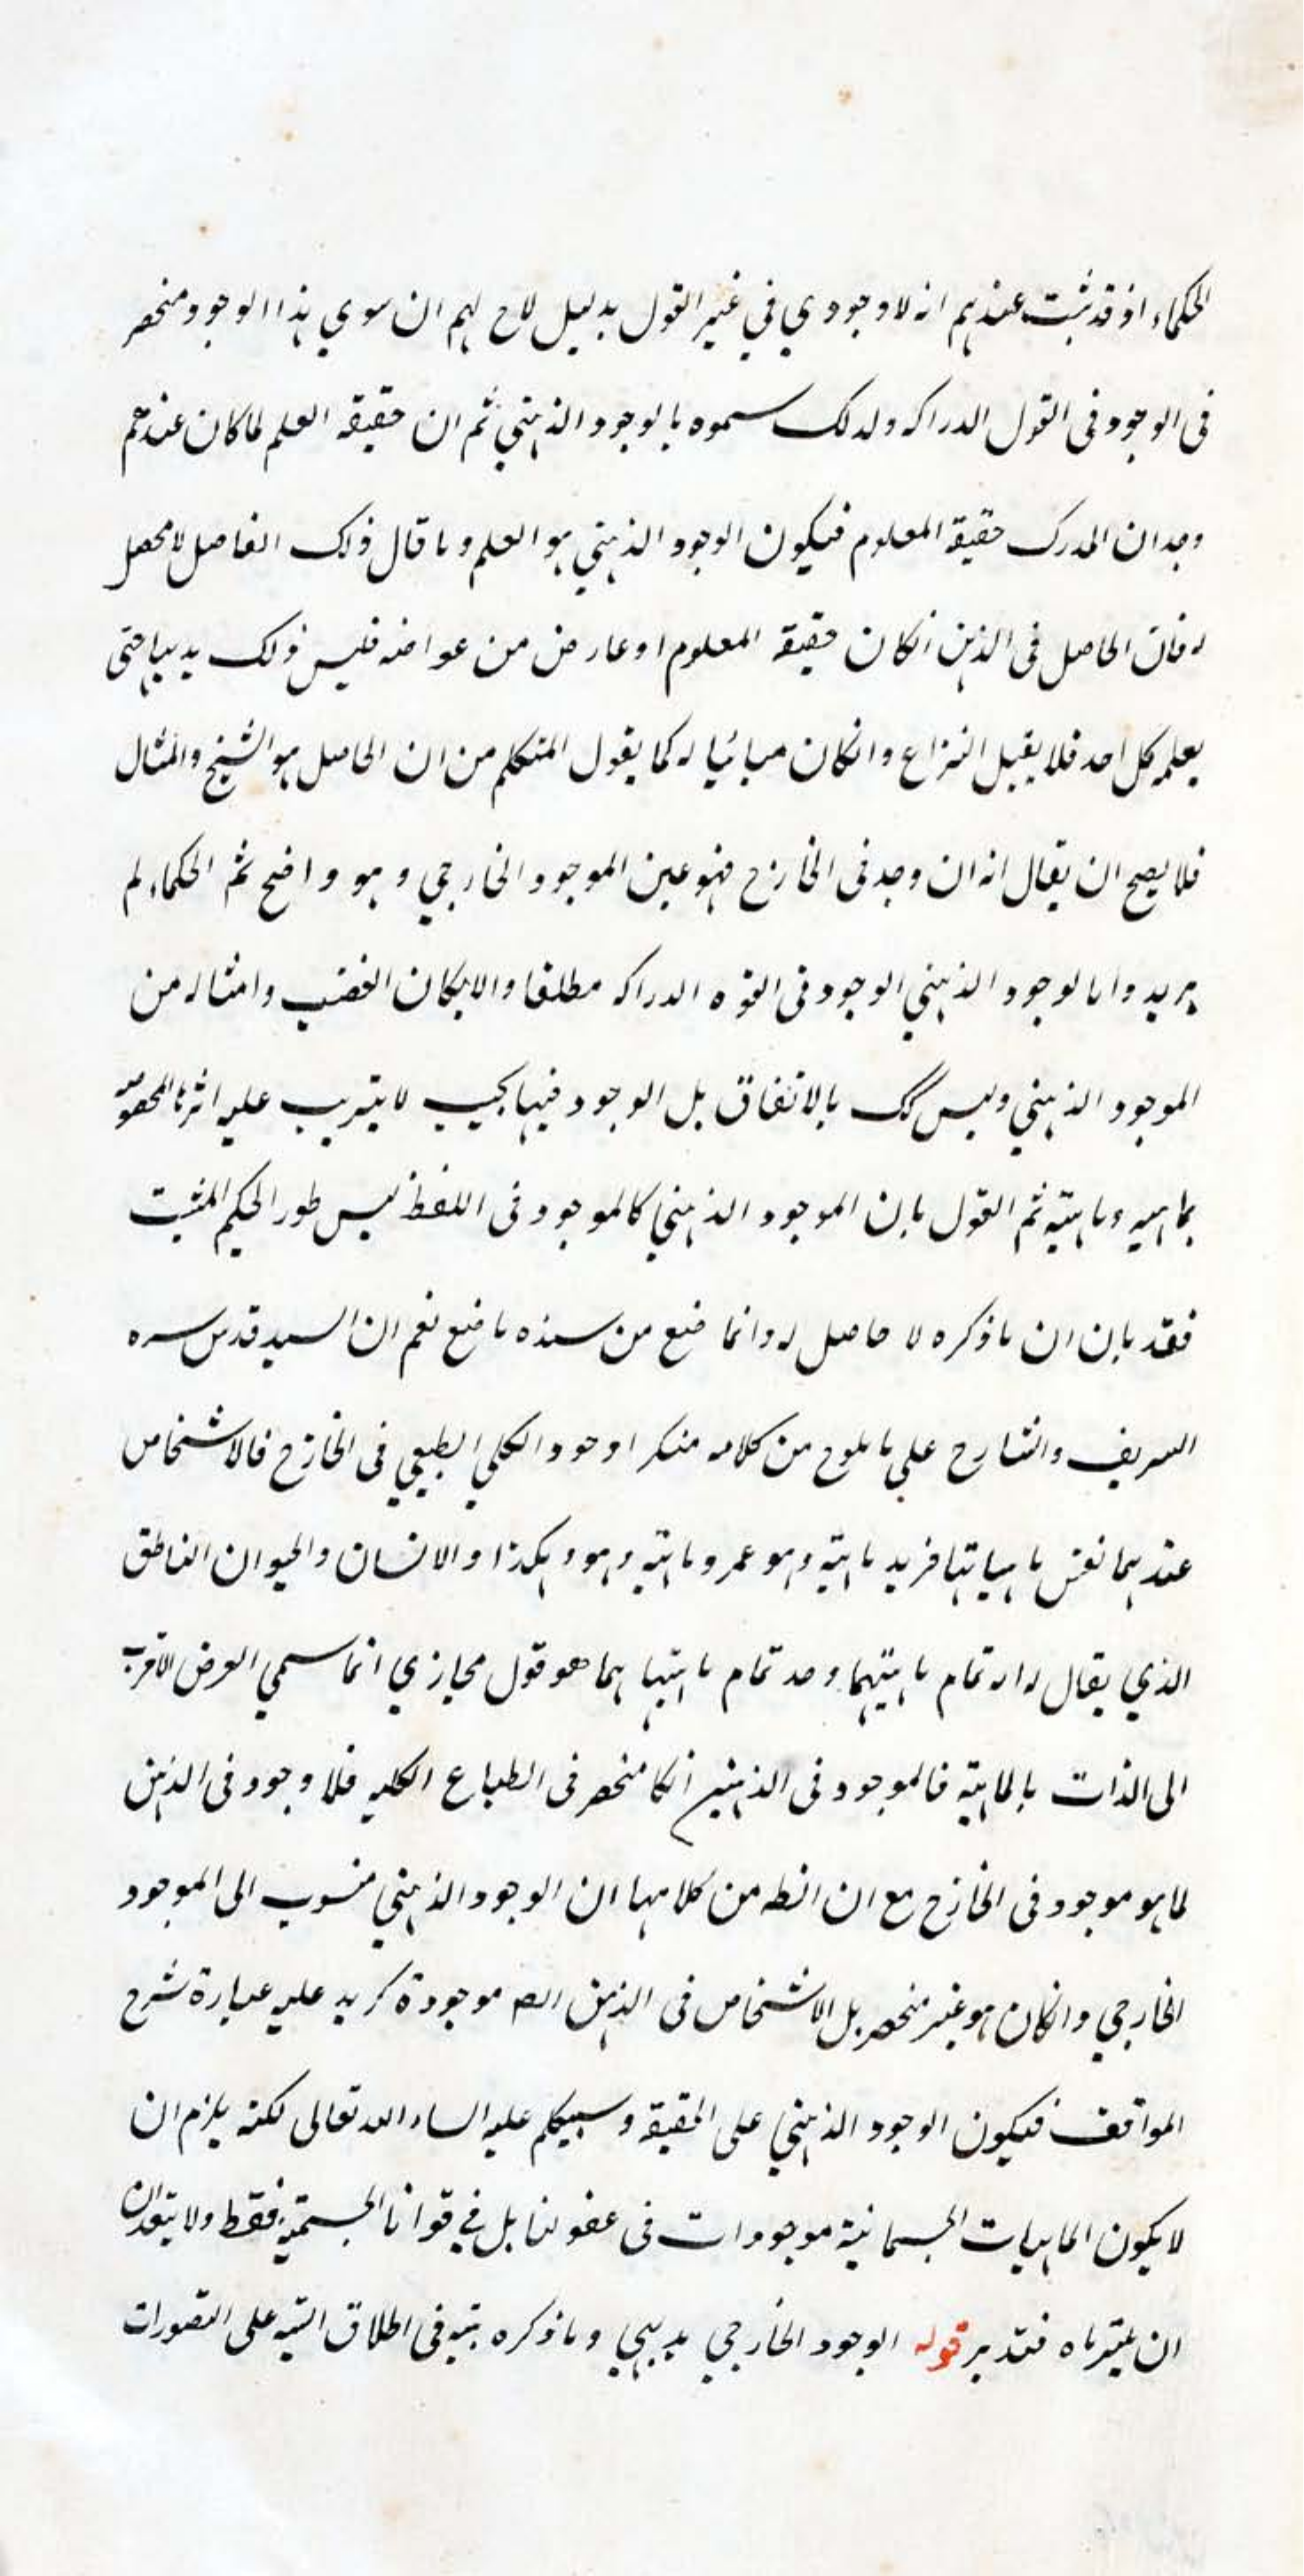 الحكماء اذ قد ثبت عندهم انه لا وجود ي في غير القول بدليل لاح لهم ان سوي هذا الوجود منحصر
فى الوجود فى القول الدراكه ولذلك سموه بالوجود الذهني ثم ان حقيقه العلم لما كان عندهم
وجدان المدرك حقيقة المعلوم فيكون الوجود الذهني هو العلم وما قال ذلك الفاصل لا محصل
له فان الحاصل فى الذهن انكان حقيقة المعلوم او عارض من عوارضه فليس ذلك بديهيا حتى
يعلمه كل احد فلا يقبل النزاع وانكان مباينا له كما يقول المتكلم من ان الحاصل هو الشبح والمثال
فلا يصح ان يقال انه ان وجد فى الخارج فهو عين الموجود الخارجي وهو واضح ثم الحكماء لم
يريدوا بالوجود الذهني الوجود فى القوه الدراكه مطلقا والا لكان الغضب وامثاله من
الموجود الذهني وليس كك بالاتفاق بل الوجود فيها بحيث لا يترتب عليه اثرها المخصوصه
بما هيه وماهيته ثم القول بان الموجود الذهني كالموجود فى اللفظ ليس طور الحكيم المثبت
فقد بان ان ما ذكره لا حاصل له وانما ضيع من سنده ما ضيع نعم ان السيد قدس سره
الشريف والشارح على ما يلوح من كلامه منكرا وجود الكلي الطبيعي فى الخارج فالاشخاص
عندهما نفس ماهياتها فزيد ماهيته وهو عمر وماهيته وهو وهكذا والانسان والحيوان الناطق
الذي يقال له انه تمام ماهيتهما وحد تمام ماهيتها بما هو قول مجازي انما سمي العرض الاقرب
الى الذات بالماهيته فالموجود فى الذهنين انكا منحصر فى الطباع الكليه فلا وجود فى الذهن
لما هو موجود فى الخارج مع ان الظه من كلامهما ان الوجود الذهني منسوب الى الموجود
الخارجي وانكان هو غير منحصر بل الاشخاص فى الذهن ايضا موجودة كزيد عليه عبارة شرح
المواقف فيكون الوجود الذهني على الحقيقة وسيكلم عليه انشاء الله تعالى لكنه يلزم ان
لا يكون الماهيات الجسمانية موجودات فى عقولنا بل في قوانا الجسمية فقط ولا يبعد ان
ان يلتزماه فتدبر قوله الوجود الخارجي بديهي وما ذكره فى اطلاق الشيه على التصورات